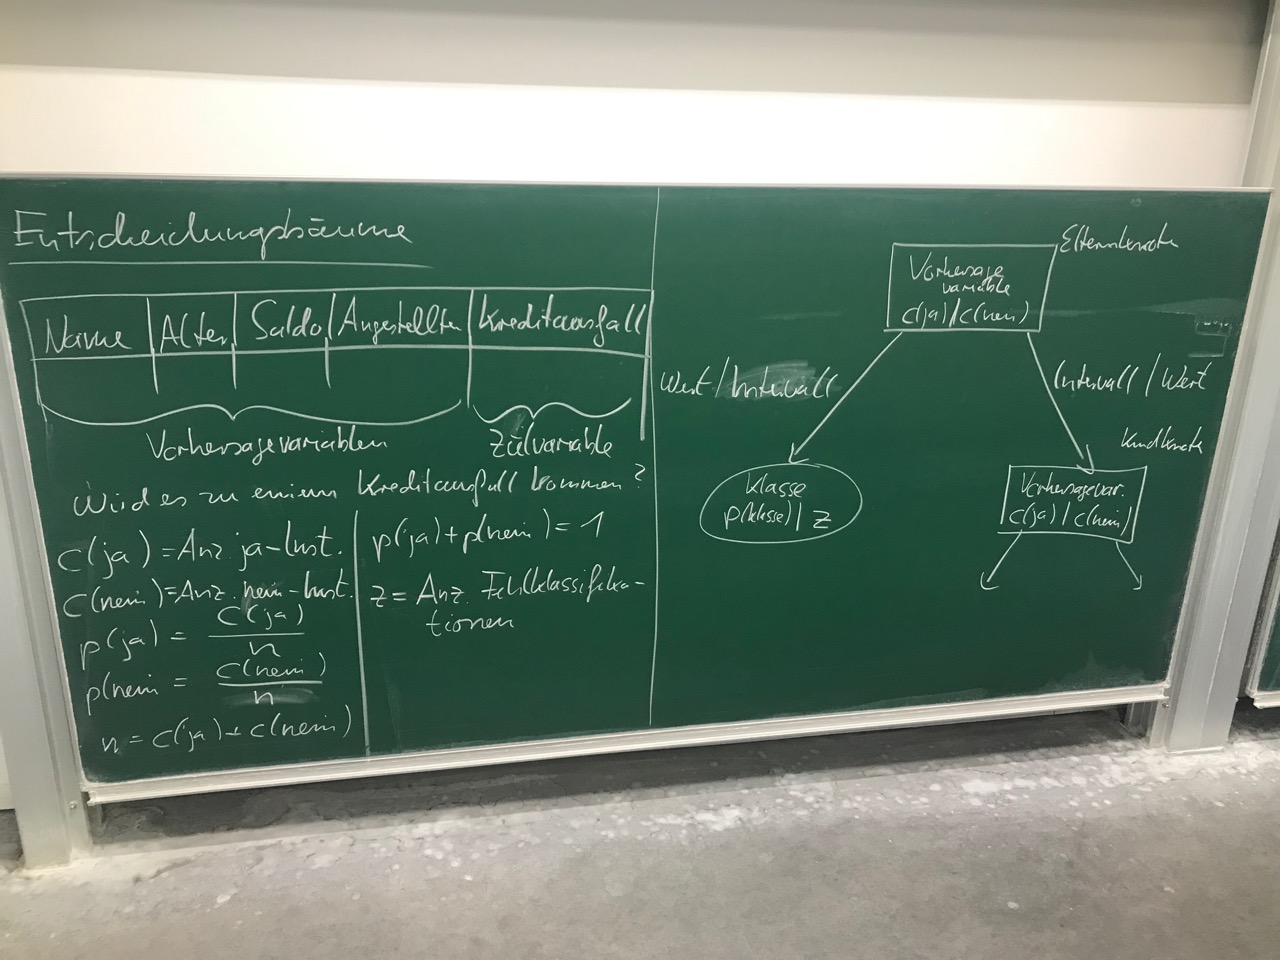 Entscheidungsbäume
Name Alter Saldo Angestellter Kreditausfall
Vorhersagevariablen Zielvariable
Wird es zu einem Kreditausfall kommen?
c(ja) = Anz. ja-Inst.
c(nein) = Anz. nein-Inst.
p(ja) = c(ja) / n
p(nein = c(nein) / n
n = c(ja) + c(nein)
p(ja) + p(nein) = 1
z = Anz. Fehlklassifika-
tionen
Elternknoten
Vorhersage
variable
c(ja) / c(nein)
Wert / Intervall
Intervall / Wert
Kindknoten
Klasse
p(klasse) | z
Vorhersagevar.
c(ja) | c(nein)